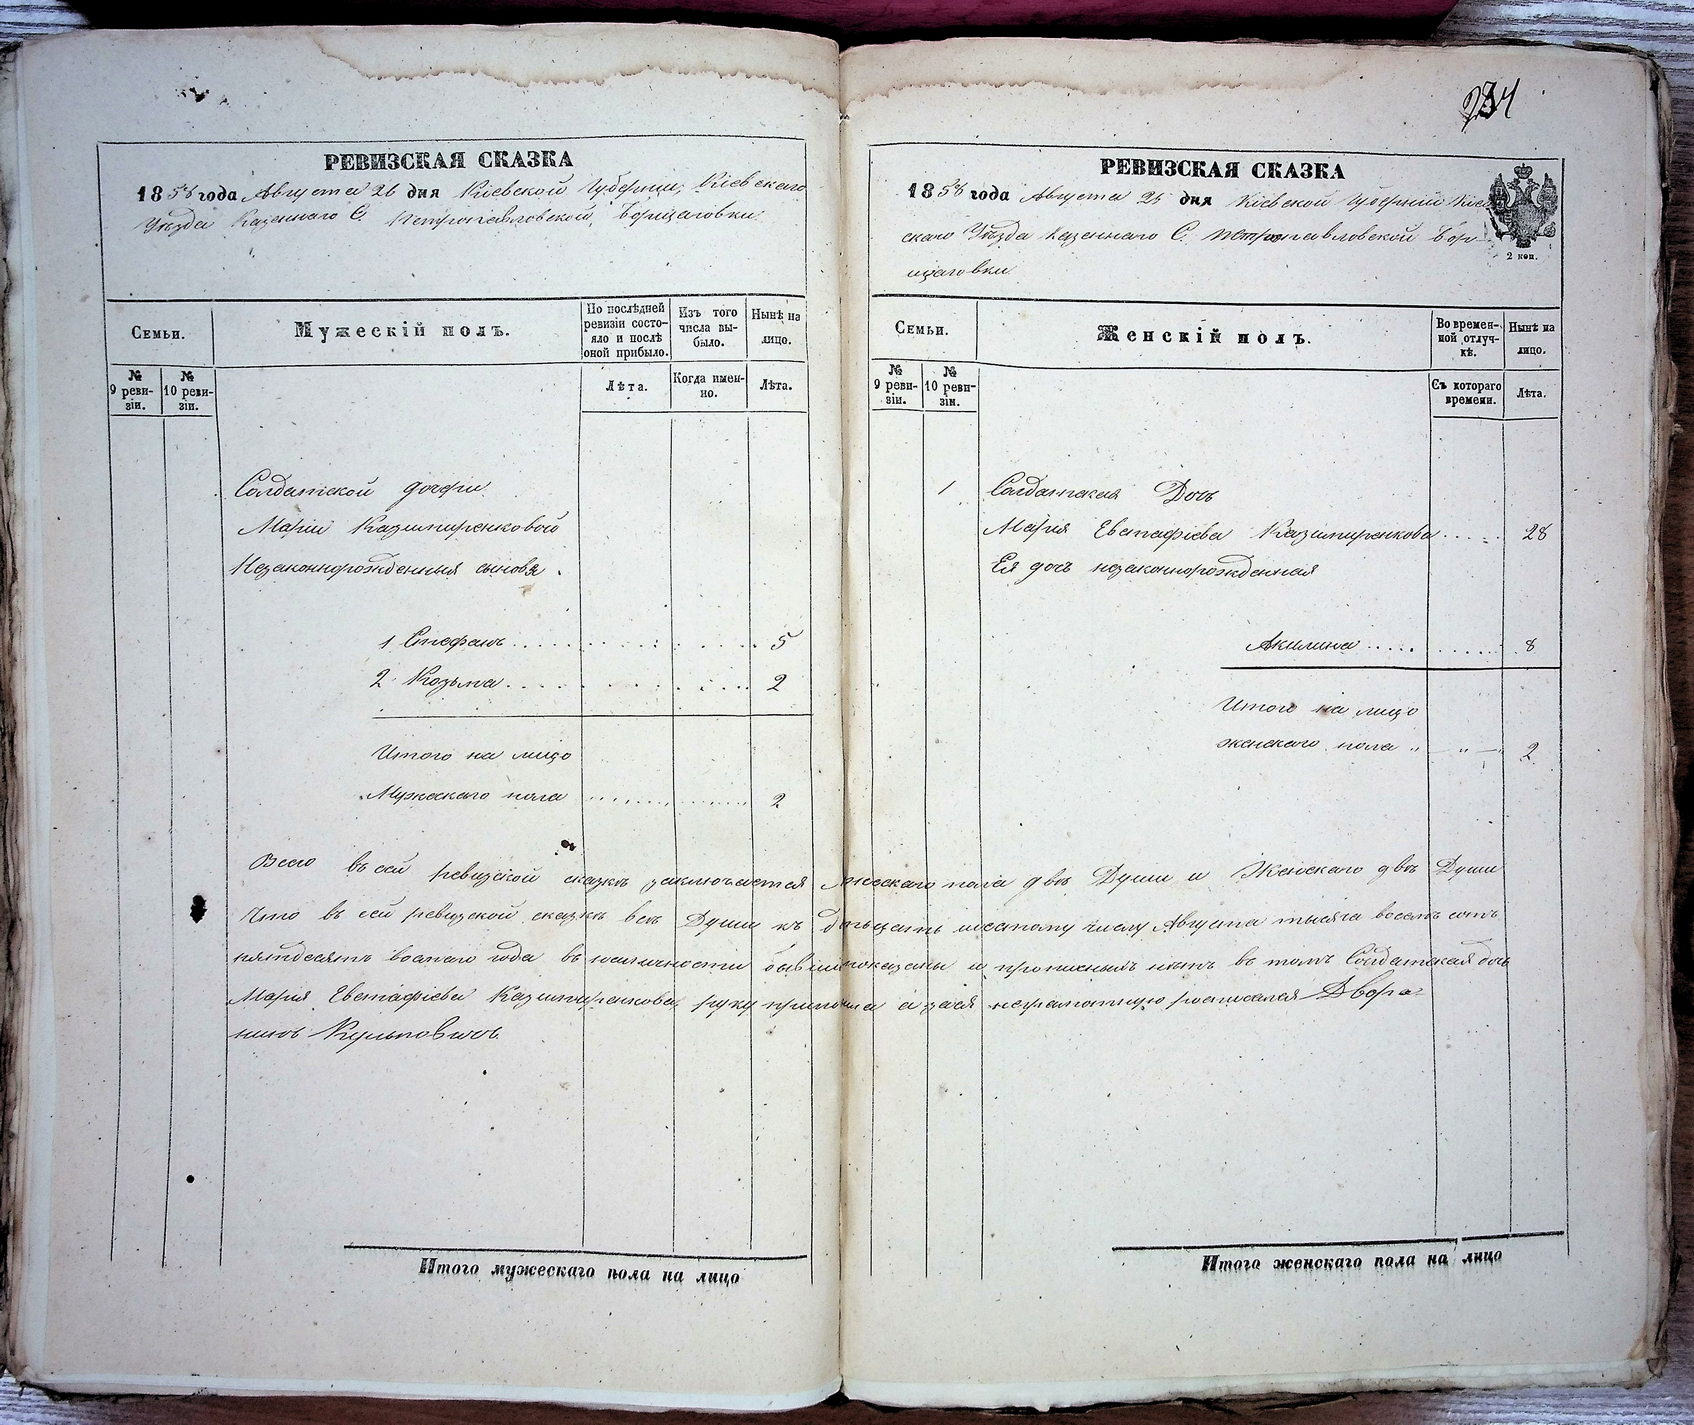 234
РЕВИЗСКАЯ СКАЗКА
1858 года Августа 26 дня Кіевской Губерніи, Кіевскаго
Уѣзда Казеннаго С. Петропавловской Борщаговки
Семьи.
Мужескій полъ.
По послѣдней ревизіи состояло и послѣ оной прибыло.
Изъ того числа выбыло.
Нынѣ на лицо.
№ 9 ревизіи.
№ 10 ревизіи.
Лѣта.
Когда именно.
Лѣта.
Солдатской дочери
Маріи Казимиренковой
Незаконнорожденныя сыновья
1 Стефанъ . . . . 5
2 Козьма . . . . 2
Итого на лицо
Мужескаго пола . . . . 2
РЕВИЗСКАЯ СКАЗКА
1858 года Августа 25 дня Кіевской Губерніи Кіев
скаго Уѣзда Казеннаго С. Петропавловской Бор
щаговки
2 коп.
Семьи.
Женскій полъ.
Во временной отлучкѣ.
Нынѣ на лицо.
№ 9 ревизіи.
№ 10 ревизіи.
Съ котораго времени.
Лѣта.
1 Солдатская Дочь
Марія Евстафіева Казимиренкова . . . . 28
Ея дочь незаконнорожденная
Акилина . . . . 8
Итого на лицо
женскаго пола " — " — 2
Всего въ сей ревизской сказкѣ заключается мужескаго пола двѣ Души и Женскаго двѣ Души
Что въ сей ревизской сказкѣ всѣ Души къ двадцать шестому числу Августа тысяча восемь сотъ
пятдесятъ восмаго года въ наличности бывшія показаны и прописныхъ нѣтъ въ томъ Солдатская дочь
Марія Евстафіева Казимиренкова, руку приложила а за нея неграмотную росписался Дворя
нинъ
Итого мужескаго пола на лицо
Итого женскаго пола на лицо